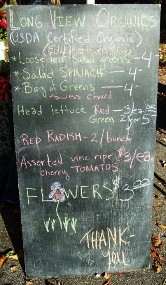 LONG VIEW ORGANICS
(USDA Certified Organic)
* Loose leaf Salad greens - 4
* Salad SPINACH - 4
* Bag of Greens - 4
Swiss Chard
Head lettuce Red - 3 ea.
Green 2 for 5
RED RADISH - 2/bunch
Assorted vine ripe $3/ea
cherry TOMATOS
FLOWERS $3.00
THANK-
YOU